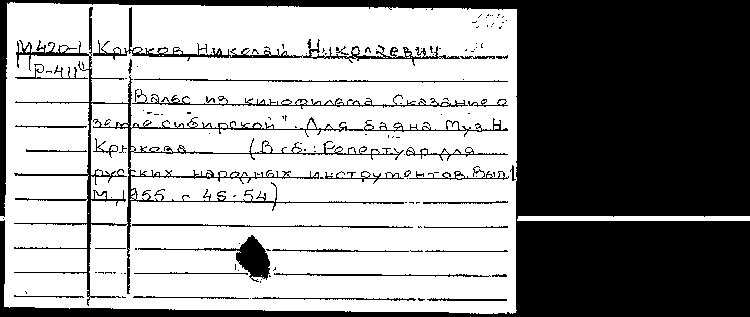 М420-1 Крюков, Николай Николаевич
Р-411
Вальс из кинофильма "Сказание о
земле сибирской". Для баяна. Муз. Н.
Крюкова (В сб.: Репертуар для
русских народных инструментов. Вып.1
М., 1955. с 45-54)